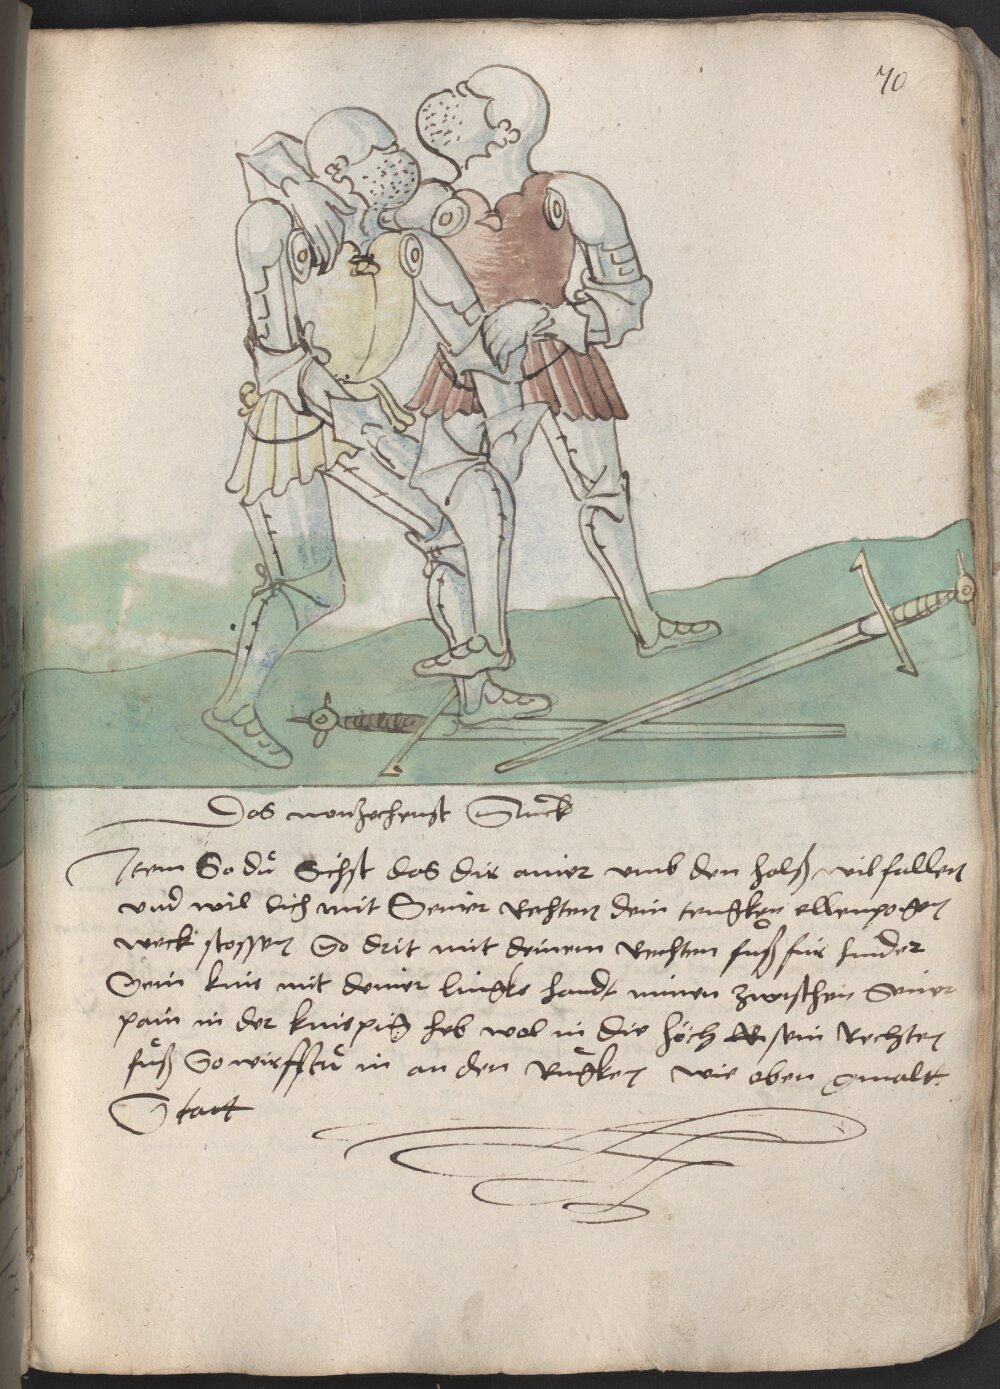 70
Das nonzechenst Stuck
Item So dů Sichst das dir ainer umb den halß wil fallen
und wil dich mit Seiner Rechten dein tengken ellenpogen
weck stossen So drit mit deinem Rechten fuß für hinder
Sein knie mit deiner lingke handt im zwischen Seiner
pain in der kniepig heb wol in die höch sein Rechten
fůß So wirfstů in an den Rugken wie oben gmalt
Statt